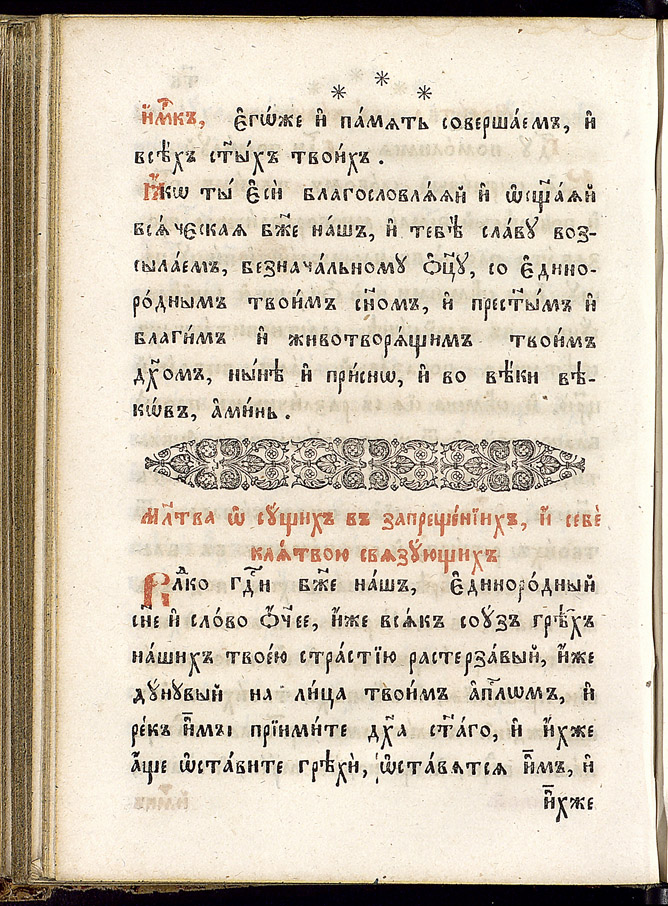 и҆м҃къ, є҆гѡ́же и҆ па́мять совершаемъ, и҆
всѣ́хъ ст҃ы́хъ твои́хъ.
Ꙗ҆́кѡ ты̀ є҆сѝ благословлѧ́ѧй и҆ ѡ҆сщ҃а́ѧй
всѧ́ческаѧ бж҃е на́шъ, и҆ тебѣ̀ сла́вꙋ воз-
сыла́емъ, безнача́льномꙋ ѻ҆ц҃ꙋ̀, со є҆дино-
ро́днымъ твои́мъ сн҃омъ, и҆ прест҃ы́мъ и҆
благи́мъ и҆ животворѧ́щимъ твои́мъ
дх҃омъ, ны́нѣ и҆ при́снѡ, и҆ во вѣ́ки вѣ-
кѡ́въ, а҆ми́нь.
мл҃тва ѡ҆ сꙋщихъ въ запреще́нїихъ, и҆ себѐ
клѧ́твою свѧзꙋ́ющихъ
Вл҃ко гд҃и бж҃е на́шъ, є҆диноро́дный
сн҃е и҆ сло́во ѻ҆́ч҃ее, и҆́же всѧ́къ соꙋ́зъ грѣ́хъ
на́шихъ твое́ю стра́стїю растерза́вый, и҆́же
дꙋ́нꙋвый на лица̀ твои́мъ а҆пⷭ҇лѡмъ, и҆
ре́къ и҆̀мъ: прїими́те дх҃а ст҃а́го, и҆ и҆́хже
а҆́ще ѡ҆ста́вите грѣхѝ, ѡ҆ста́вѧтсѧ и҆̀мъ, и҆
и҆́хже